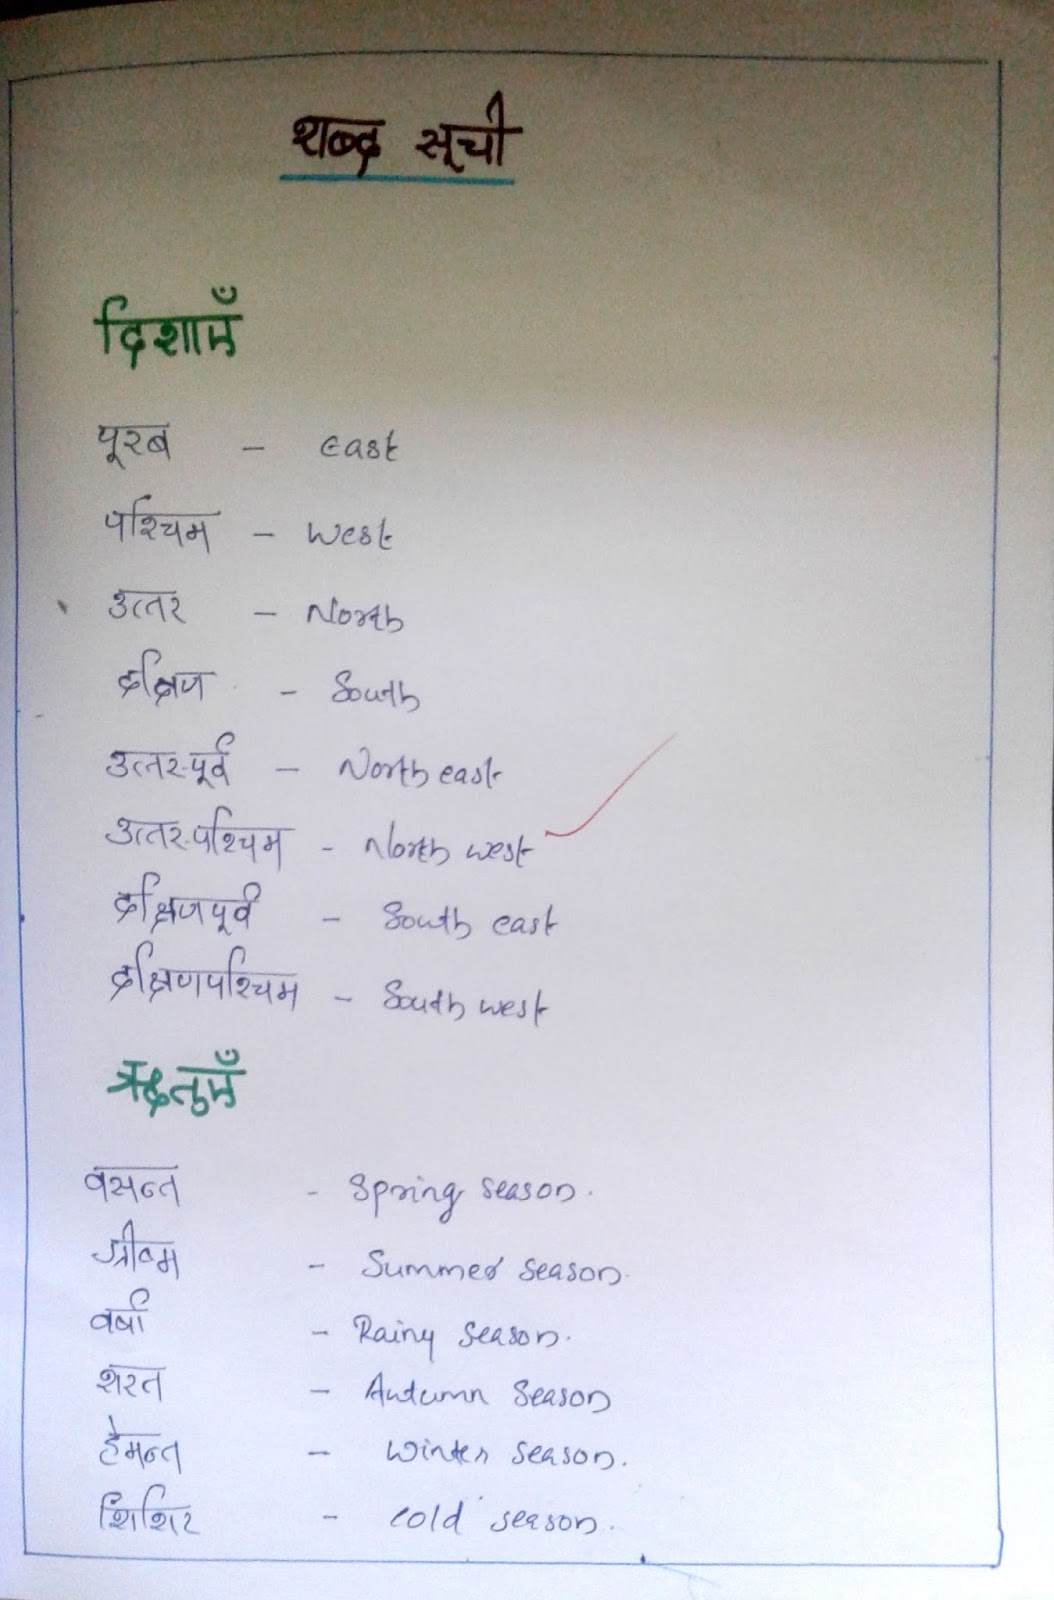 शब्द सूची
दिशाएँ
पूरब - east
पश्चिम - west
उत्तर - North
दक्षिण - South
उत्तर-पूर्व - North east
उत्तर-पश्चिम - North west
दक्षिणपूर्व - South east
दक्षिणपश्चिम - South west
ऋतुएँ
वसन्त - Spring season.
ग्रीष्म - Summer season.
वर्षा - Rainy season.
शरत - Autumn season
हेमन्त - winter season.
शिशिर - cold season.